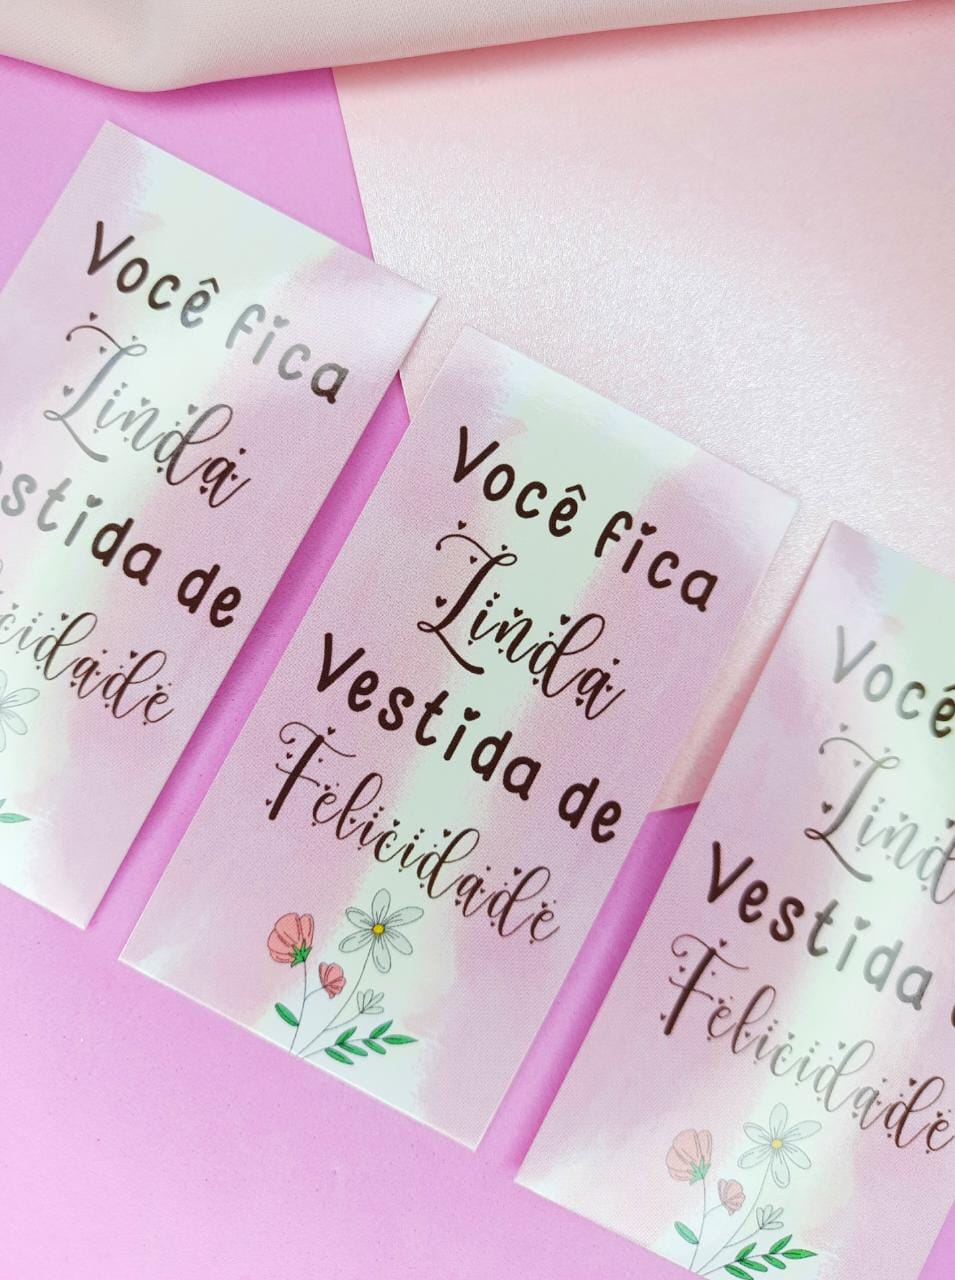 Você fica
Linda
estida de
licidade
Você fica
Linda
Vestida de
Felicidade
Você
Lind
Vestida
Felicidade